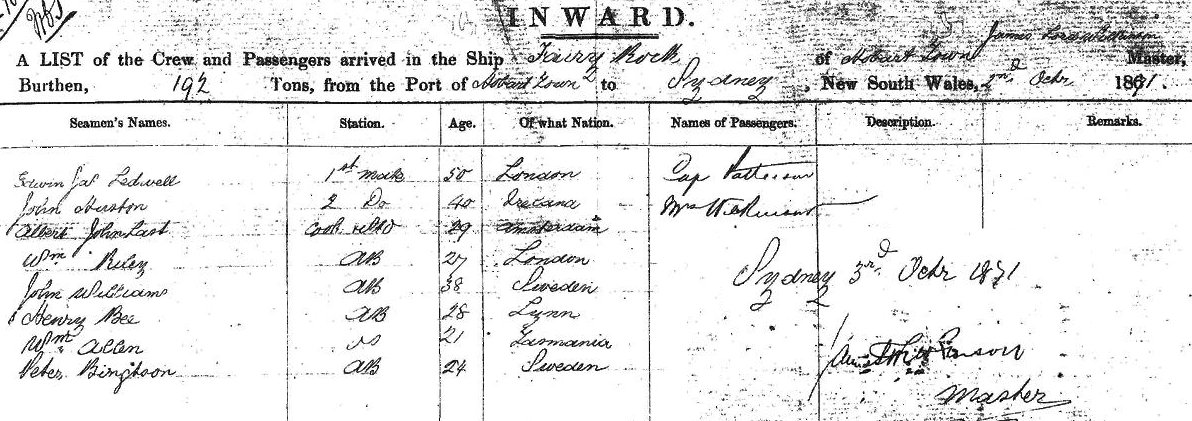 INWARD.
James
A LIST of the Crew and Passengers arrived in the Ship Fairy Rock of Hobart Town Master,
Burthen, 192 Tons, from the Port of Hobart Town to Sydney, New South Wales, Octr 1871.
Seamen's Names. Station. Age. Of what Nation. Names of Passengers. Description. Remarks.
Edwin Jas Ledwell 1st mate 50 London Cap Patterson
John Huston 2 Do 40 Ireland Mrs Wilkinson
Albert John Last Cook 29 Amsterdam
Wm Riley AB 27 London
Sydney 3rd Octr 1871
John Williams AB 38 Sweden
Henry Bee AB 28 Lynn
Wm Allen 21 Tasmania
Peter Bingtson AB 24 Sweden
Master